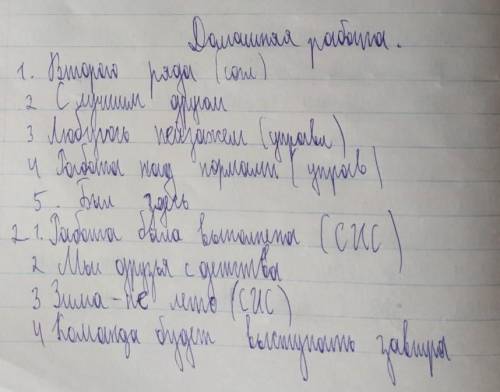 Домашняя работа.
1. Второго ряда (согл)
2 С лучшим другом
3 Любуюсь пейзажем (управл)
4 Работа над нормами (управ)
5. Был здесь
2 1. Работа была выполнена (СИС)
2 Мы друзья с детства
3 Зима - не лето (СИС)
4 Команда будет выступать завтра